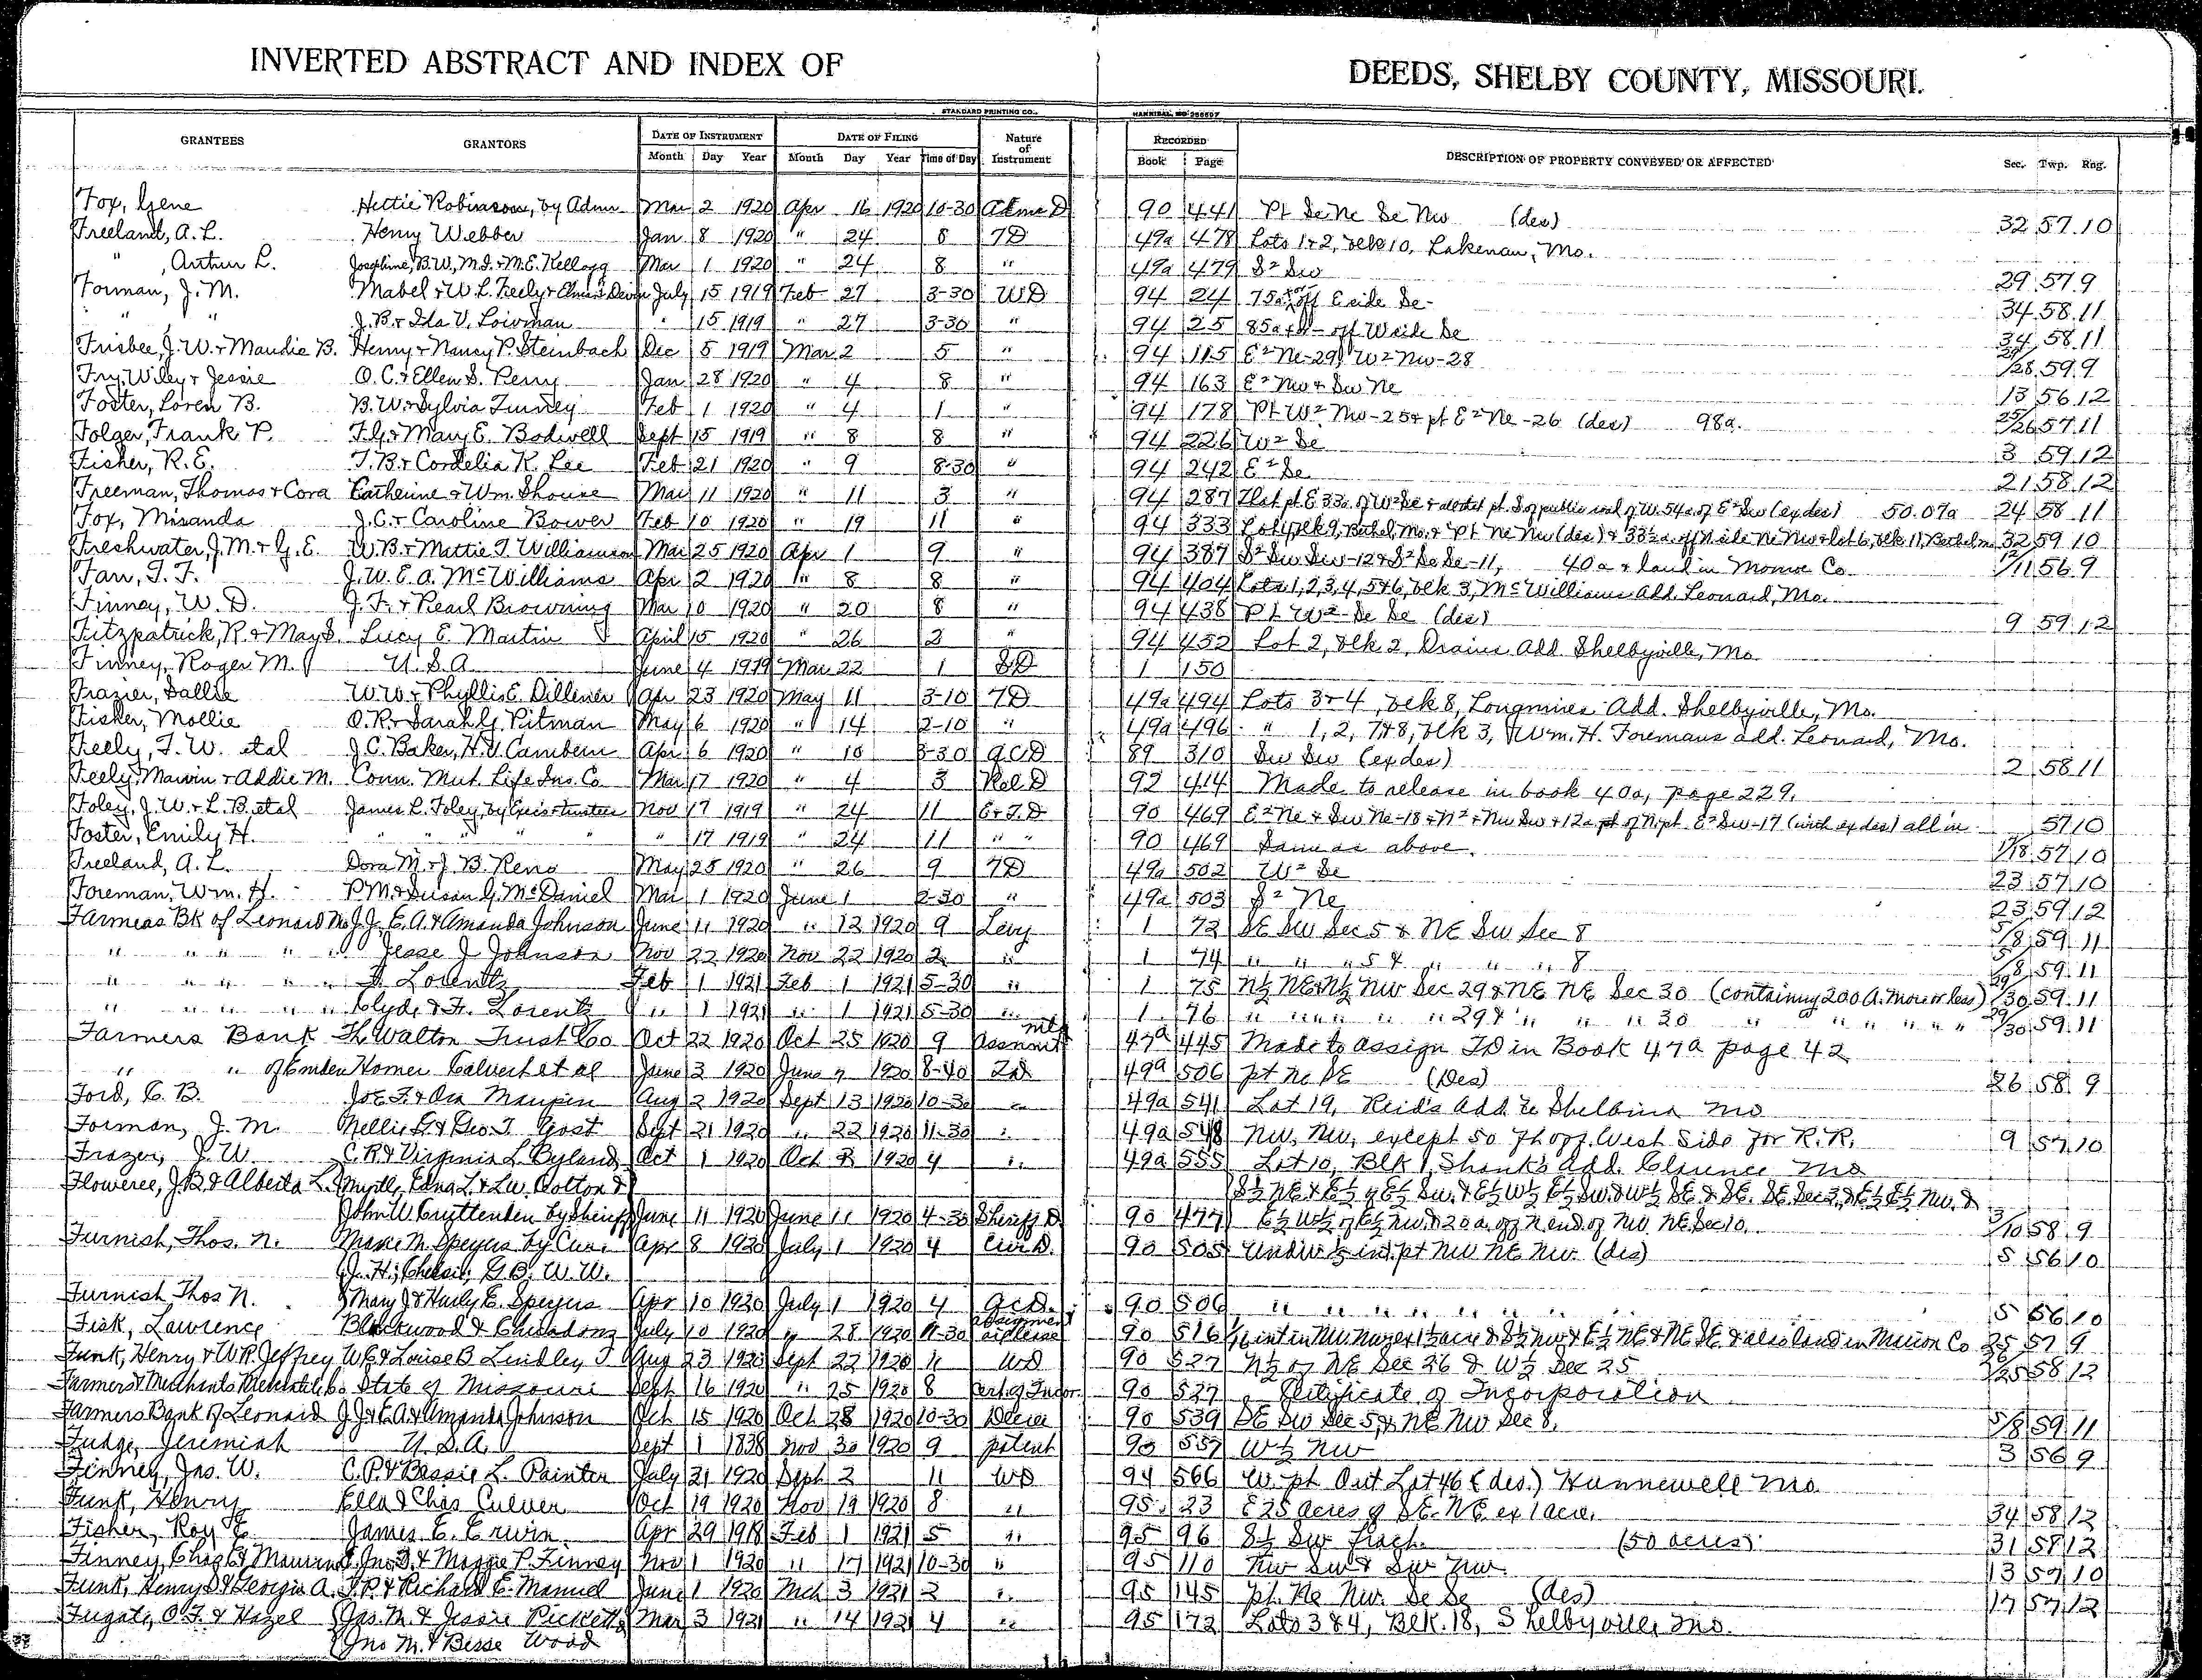 INVERTED ABSTRACT AND INDEX OF DEEDS, SHELBY COUNTY, MISSOURI.
STANDARD PRINTING CO., HANNIBAL, MO
GRANTEES GRANTORS DATE OF INSTRUMENT DATE OF FILING Nature of Instrument RECORDED DESCRIPTION OF PROPERTY CONVEYED OR AFFECTED Sec. Twp. Rng.
Month Day Year Month Day Year Time of Day Book Page
Fox, Gene Hettie Robinson, by Admr Mar 2 1920 Apr 16 1920 10-30 Adms D 90 441 Pt Se Ne Se Nw (des) 32 57 10
Freeland, A. L. Henry Webber Jan 8 1920 " 24 8 TD 49a 478 Lots 1+2, blk 10, Lakenan, Mo.
" , Arthur L. Josephine, B.W, M.I. + M.E. Kellogg Mar 1 1920 " 24 8 " 49a 479 S² Sw 29 57 9
Forman, J. M. Mabel + W. L. Feely + July 15 1919 Feb 27 3-30 WD 94 24 75a off E side Se 34 58 11
" " J. B. + Ida V. Lowman " 15 1919 " 27 3-30 " 94 25 85a off W side Se 34 58 11
Frisbee, J. W. + Maudie B. Henry + Nancy P. Steinbach Dec 5 1919 Mar 2 5 " 94 115 E² Ne-29, W² Nw-28 29/28 59 9
Fry, Wiley + Jessie O. C. + Ellen S. Perry Jan 28 1920 " 4 8 " 94 163 E² Nw + Sw Ne 13 56 12
Foster, Loren B. B. W. + Sylvia Turney Feb 1 1920 " 4 1 " 94 178 Pt W² Nw-25 + pt E² Ne-26 (des) 98a. 25/26 57 11
Folger, Frank P. F. G. + Mary E. Bodwell Sept 15 1919 " 8 8 " 94 226 W² Se 3 59 12
Fisher, R. E. T. B. + Cordelia K. Lee Feb 21 1920 " 9 8-30 " 94 242 E² Se 21 58 12
Freeman, Thomas + Cora Catherine + Wm. Shouse Mar 11 1920 " 11 3 " 94 287 That pt E 33a of W² Se + pt. S of public road of W. 54a of E² Sw (ex des) 50.07a 24 58 11
Fox, Miranda J. C. + Caroline Bower Feb 10 1920 " 19 11 " 94 333 Lot 4, blk 9, Bethel, Mo. + Pt Ne Nw (des) + 33½a off N side Ne Nw + lot 6, blk 11, Bethel Mo 32 59 10
Freshwater, J. M. + G. E. W. B. + Mattie T. Williamson Mar 25 1920 Apr 1 9 " 94 387 S² Sw Sw-12 + S² Se Se-11, 40a + land in Monroe Co. 12/11 56 9
Farr, T. F. J. W. E. A. McWilliams Apr 2 1920 " 8 8 " 94 404 Lots 1, 2, 3, 4, 5+6, blk 3, McWilliams Add. Leonard, Mo.
Finney, W. D. J. F. + Pearl Browning Mar 10 1920 " 20 8 " 94 438 Pt W² Se Se (des) 9 59 12
Fitzpatrick, R. + May S. Lucy E. Martin April 15 1920 " 26 2 " 94 452 Lot 2, blk 2, Drains Add Shelbyville, Mo
Finney, Roger M. U. S. A June 4 1919 Mar 22 1 SD 1 150
Frazier, Sallie W W. + Phyllis E. Dillener Apr 23 1920 May 11 3-10 TD 49a 494 Lots 3+4, blk 8, Longmires Add. Shelbyville, Mo.
Fisher, Mollie O. R. + Sarah G. Pitman May 6 1920 " 14 2-10 " 49a 496 " 1, 2, 7+8, blk 3, Wm. H. Foremans add. Leonard, Mo.
Feely, T. W. etal J. C. Baker, H. V. Cambern Apr 6 1920 " 10 3-30 QCD 89 310 Sw Sw (ex des) 2 58 11
Feely, Marvin + Addie M. Conn. Mut. Life Ins. Co Mar 17 1920 " 4 3 Rel D 92 414 Made to release in book 40a, page 229.
Foley, J. W. + L. B. etal James L. Foley, by Exrs + trustees Nov 17 1919 " 24 11 E+T. D 90 469 E² Ne + Sw Ne-18 + N² + Nw Sw + 12a pt of N pt E² Sw-17 (with ex des) all in 57 10
Foster, Emily H. " " " " " 17 1919 " 24 11 " " 90 469 Same as above. 17/18 57 10
Freeland, A. L. Dora M. + J. B. Reno May 25 1920 " 26 9 TD 49a 502 W² Se 23 57 10
Foreman, Wm. H. P. M. + Susan G. McDaniel Mar 1 1920 June 1 2-30 " 49a 503 S² Ne 23 59 12
Farmers Bk of Leonard Mo J. J. E. A. & Amanda Johnson June 11 1920 " 12 1920 9 Levy 1 72 SE SW Sec 5 & NE Sw Sec 8 5/8 59 11
" " " " " Jesse J Johnson Nov 22 1920 Nov 22 1920 2 " 1 74 " " " 5 & " " " 8 5/8 59 11
" " " " " F. Lorentz Feb 1 1921 Feb 1 1921 5-30 " 1 75 N½ NE & N½ NW Sec 29 & NE NE Sec 30 (containing 200 A. more or less) 29/30 59 11
" " " " " Clyde & F. Lorentz " 1 1921 " 1 1921 5-30 " 1 76 " " " " " 29 & " " " 30 " " " " " " 29/30 59 11
Farmers Bank The Walton Trust Co Oct 22 1920 Oct 25 1920 9 Mtg Assnmt 47a 445 Made to assign TD in Book 47a page 42
" " of Emden Homer Calvert et al June 3 1920 June 7 1920 8-40 TD 49a 506 pt Ne SE (Des) 26 58 9
Ford, C. B. Joe F. & Ora Maupin Aug 2 1920 Sept 13 1920 10-30 " 49a 541 Lot 19, Reid's Add to Shelbina Mo
Forman, J. M. Nellie G & Geo. T. Gost Sept 21 1920 " 22 1920 11-30 " 49a 548 NW, NW, except 50 ft off West Side for R.R. 9 57 10
Frazer, J. W. C. R. & Virginia L. Byland Oct 1 1920 Oct 2 1920 4 " 49a 555 Lot 10, Blk 1, Shank's Add. Clarence Mo
Floweree, J. B. & Alberta L. Myrtle, Edna L. & L.W. Cotton & S½ NE & E½ of E½ Sw. & E½ W½ E½ Sw & W½ SE & SE. SE Sec 3, & E½ E½ NW. &
John W Cruttenden by Sheriff June 11 1920 June 11 1920 4-30 Sheriff D 90 477 E½ W½ of E½ NW & 20 a. off N end of NW NE Sec 10. 3/10 58 9
Furnish, Thos. N. Marie M. Speyers by Cur. Apr 8 1920 July 1 1920 4 Cur D. 90 505 Undiv ½ int. pt NW NE NW. (des) 5 56 10
J. H., Chessie, G. B. W. W.
Furnish Thos N. Mary J & Harly E. Speyers Apr 10 1920 July 1 1920 4 QCD. 90 506 " " " " " " " 5 56 10
Fisk, Lawrence Blackwood & July 10 1920 " 28 1920 11-30 assignment oil lease 90 516 25 57 9
Funk, Henry & W. P. Jeffrey W. E. & Louise B Lindley Aug 23 1920 Sept 22 1920 11 WD 90 527 N½ of NE Sec 26 & W½ Sec 25 26/25 58 12
Farmers & Merchants Mercantile Co State of Missouri Sept 16 1920 " 25 1920 8 Cert. of Incor. 90 527 Certificate of Incorporation
Farmers Bank of Leonard J. J. & E. A. & Amanda Johnson Oct 15 1920 Oct 28 1920 10-30 Decree 90 539 SE SW Sec 5, & NE NW Sec 8, 5/8 59 11
Fudge, Jeremiah U. S. A. Sept 1 1838 Nov 30 1920 9 patent 90 557 W½ NW 3 56 9
Finney, Jas. W. C. P. & Bessie L. Painter July 21 1920 Sept 2 11 WD 94 566 W. pt. Out Lot 46 (des.) Hunnewell Mo.
Funk, Henry Ella & Chas Culver Oct 19 1920 Nov 19 1920 8 " 95 23 E 25 acres of SE. NE ex 1 acre. 34 58 12
Fisher, Roy E. James E. Erwin Apr 29 1918 Feb 1 1921 5 " 95 96 S½ Sw frac. (50 acres) 31 58 12
Finney, Chas E & Maurine Jno. D. & Maggie P. Finney Nov 1 1920 " 17 1921 10-30 " 95 110 NW SW & SW NW. 13 57 10
Funk, Henry S & Georgia A. J. P. & Richard E. Manuel June 1 1920 Mch 3 1921 2 " 95 145 pt. Ne Nw. Se Se (des) 17 57 12
Fugate, O. F. & Hazel Jas. M. & Jessie Picketts Mar 3 1921 " 14 1921 4 " 95 172 Lots 3 & 4, Blk. 18, Shelbyville, Mo.
Jno M. & Besse Wood